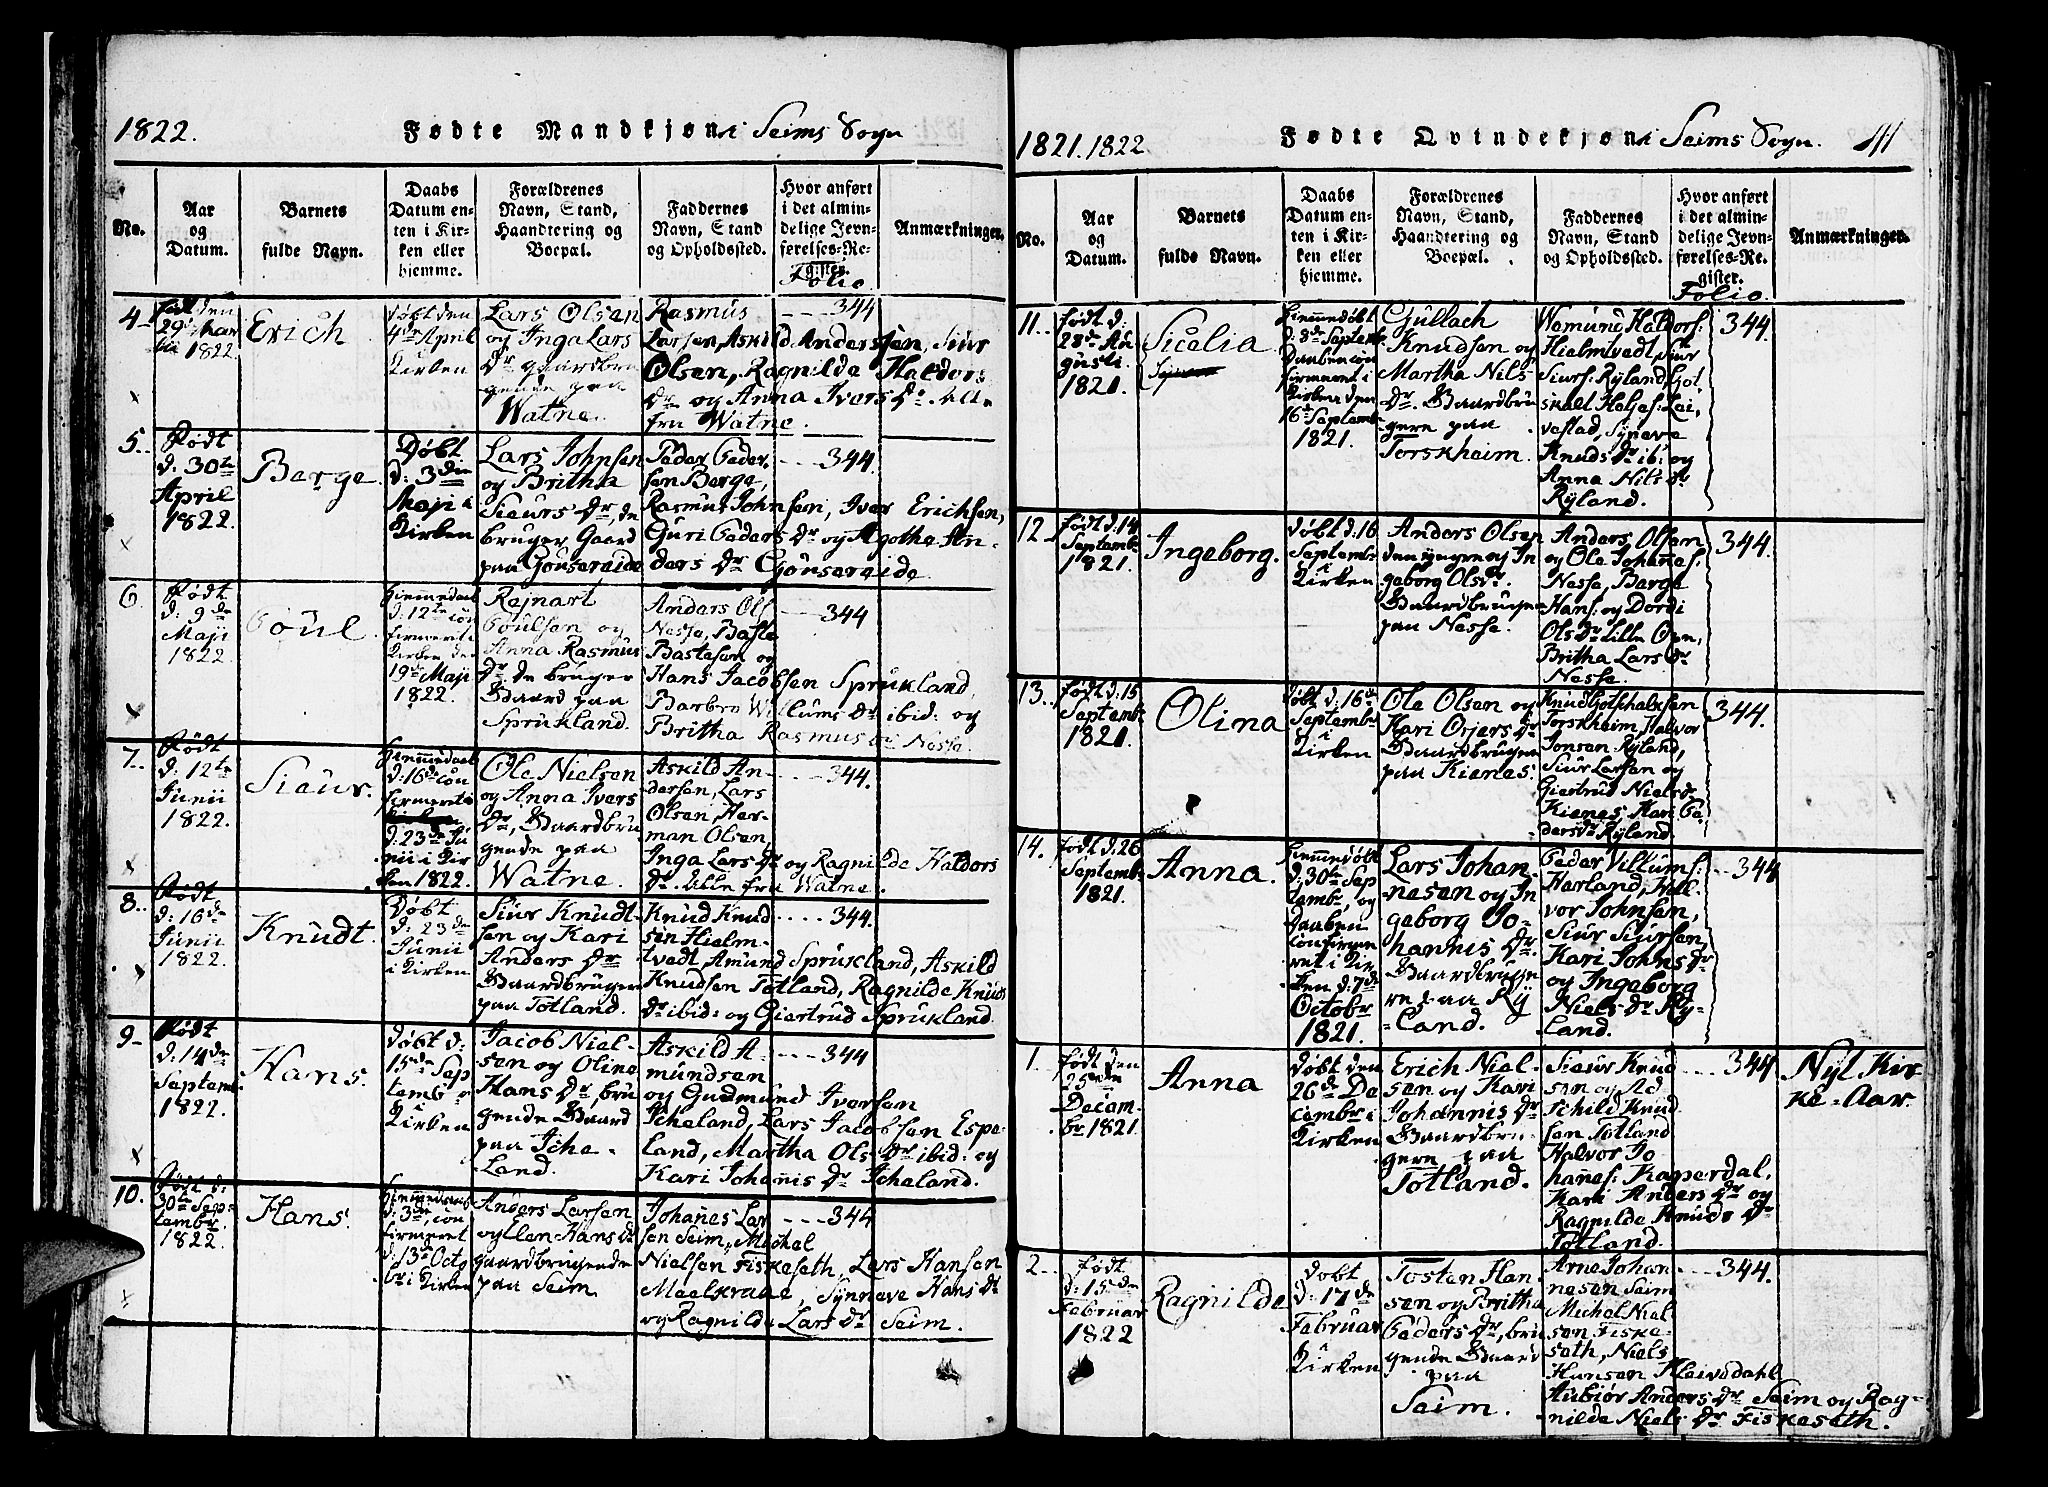 1822. Fødte Mandkjøn i Seims Sogn
No.
Aar
og
Datum.
Barnets
fulde Navn.
Daabs
Datum en-
ten i Kir-
ken eller
hjemme.
Forældrenes
Navn, Stand,
Haandtering og
Boepæl.
Faddernes
Navn, Stand
og Opholdssted.
Hvor anført
i det almin-
delige Jevn-
førelses-Re-
gister.
Folio
Anmærkninger.
4
født den
29
1822.
Erich
døbt den
4de April
Kirken
Lars Olsen
og Inga Lars
Dr gaardbru
gende paa
Watne.
Rasmus
Larsen, Askild Andersen, Siur
Olsen, Ragnilde Haldors
Dr og Anna Ivers Dr Alle
fra Watne.
344
5.
Født
d: 30te
April
1822.
Berge
Døbt
d: 3die
Maji i
Kirken
Lars Johnsen
og Britha
Sieurs Dr, de
bruger Gaard
paa Gonseraide
Peder Peder
sen Berge,
Rasmus Johnsen, Iver Erichsen,
Guri Peders Dr og Agotha An-
ders Dr Gonseraide.
344.
6.
Født
d: 9de
Maji
1822.
Poul
Hiemmedøbt
d: 12te con
firmerit i
Kirken den
19de Maji
1822.
Rejnart
Poulsen og
Anna Rasmus
Dr. de bruger
Gaard paa
Sprukland.
Anders Ols
Nesse, Baste
Bastesen og
Hans Jacobsen Sprukland,
Barbro Willums Dr ibid: og
Britha Rasmus Dr Nesse.
344
7.
Født
d: 12te
Junii
1822.
Sieur.
Hiemmedøbt
d: 16de con
firmerit i
d: 23de Ju
nii i Kir
ken 1822.
Ole Nielsen
og Anna Ivers
Dr, Gaardbru
gende paa
Watne.
Askild An-
dersen, Lars
Olsen, Her-
man Olsen,
Inga Lars Dr og Ragnilde Haldors
Dr. Alle fra Watne.
344.
8.
Født
d: 16de
Junii
1822.
Knudt.
Døbt
d: 23de
Junii
i Kirken
Siur Knudt-
sen og Kari
Anders Dr
Gaardbrugen
paa Totland.
Knud Knud
sen Hielm-
tvedt, Amund Sprukland, Askild
Knudsen Totland, Ragnilde Knuds
Dr ibid: og Giertrud Sprukland.
344.
9
Født
d: 14de
Septemb.
1822.
Hans.
Døbt d:
15de Sep
temb
i
Kirken
Jacob Niel-
sen og Oline
Hans Dr, bru
gende Gaard
paa Iche-
land.
Askild A-
mundsen
og Gudmund Iversen
Icheland, Lars Jacobsen Espe
land, Martha Ols Dr ibid: og
Kari Johanis Dr Icheland.
344
10.
Født d:
30te Sep-
tembr
1822.
Hans.
d: 3de, con
firmeret
d: 13de Octo
bri i Kirken
Anders Larsen
og Elen Hans Dr
gaardbrugende
paa Seim.
Johanes Lar
sen Seim, Mechel
Nielsen Fiskeseth, Lars Hansen
Meelkraae, Synneve Hans Dr
og Ragnilde Lars Dr Seim.
344
1821. 1822 Fødte Qvindekjøn i Seims Sogn. 41
No.
Aar
og
Datum.
Barnets
fulde Navn.
Daabs
Datum en-
ten i Kir-
ken eller
hjemme.
Forældrenes
Navn, Stand,
Haandtering og
Boepæl.
Faddernes
Navn, Stand
og Opholdssted.
Hvor anført
i det almin-
delige Jevn-
førelses-Re-
gister.
Folio.
Anmærkninger.
11.
født d:
28de Au
gusti
1821.
Sicelia
Hiemmedøbt
d: 3de Septebr
Daaben con
firmeret i
Kirken den
16de Septemb
1821.
Gullach
Knudsen og
Martha Nils
Dr. Gaardbru
gere paa
Torskheim.
Wemund Haldors:
Hielmtvedt, Siur
Siurs: Ryland, Got
skalk Heljes: Lei,
vestad, Syneve
Knuds Dr ib: og
Anna Nils Dr
Ryland.
344.
12.
født d: 14
Septembr
1821.
Ingeborg.
døbt d: 16
Septembr
i
Kirken
Anders Olsen
den yngre og In
geborg Ols Dr
Gaardbrugen
paa Nesse.
Anders Olsen
og Ole Johanes:
Nesse, Berge
Hans: og Dordi
Ols Dr Lille Open,
Britha Lars Dr
Nesse.
344.
13.
født d: 15
Septembr
1821.
Olina
døbt d: 16de
Septembr
i
Kirken
Ole Olsen og
Kari Orjers Dr
Gaardbrugen
paa Kienes.
Knud Gotschalksen
Torskheim, Halvor
Jonsen Ryland,
Siur Larsen og
Giertrud Niels Dr
Kienes, Kari Pe
ders Dr Ryland.
344.
14.
født d. 26
Septembr
1821.
Anna.
Hiemmedøbt
d: 30te Sep
tembr, og
Daaben
confirme
ret i Kir
ken d: 7de
Octobr
1821.
Lars Johan-
nesen og In
geborg Jo-
hannis Dr.
Gaardbruge
re paa Ry
land.
Peder Villums:
Harland, Hal-
vor Johnsen,
Siur Siursen
Kari Johns Dr
og Ingeborg
Niels Dr Ry-
land.
344
1.
født den
25de
Decem-
br 1821.
Anna
Døbt den
26de De
cembr i
Kirken
Erich Niel-
sen og Kari
Johannis Dr
Gaardbru-
gere paa
Totland.
Sieur Knud
sen og Ad
schild Knud
sen Totland
Halvor Jo
hanes: Kaperdal,
Kari Anders Dr og
Ragnilde Knuds Dr
Totland.
344
Nyt Kir
ke-Aar.
2.
født
d: 15de
Februar
1822
Ragnilde
døbt
d: 17de
Februar
i
Kirken
Tosten Han
sen og Britha
Peders Dr, bru
gende Gaard
paa
Seim.
Arne Johan
nesen Seim
Michel Niel
sen Fiske-
seth, Niels
Hansen Kleivedahl
Aubiør Anders Dr Seim og Rag-
nilde Niels Dr Fiskeseth.
344.